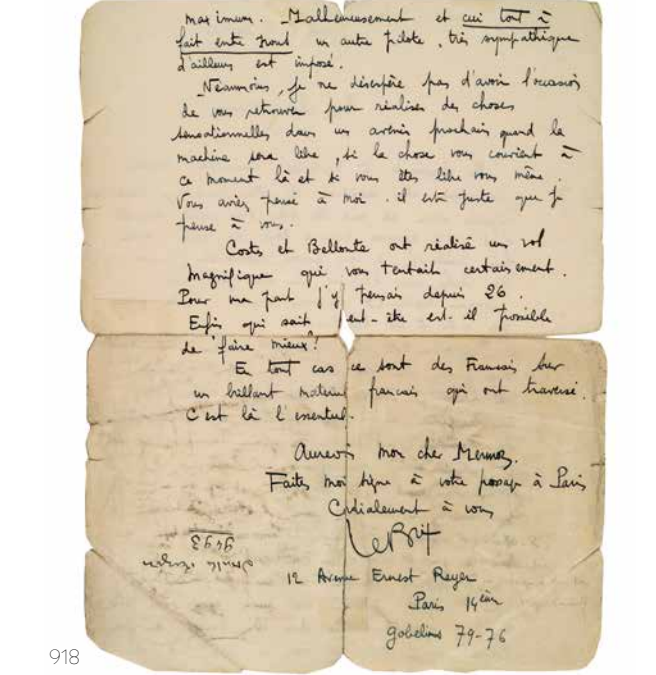 maximum. Malheureusement et ceci tout à
fait entre nous un autre pilote, très sympathique
d'ailleurs est imposé.
Néanmoins, je ne désespère pas d'avoir l'occasion
de vous retrouver pour réaliser des choses
sensationnelles dans un avenir prochain quand la
machine sera libre, si la chose vous convient à
ce moment là et si vous êtes libre vous même.
Vous aviez pensé à moi. il est juste que je
pense à vous.
Costes et Bellonte ont réalisé un vol
magnifique qui vous tentait certainement.
Pour ma part j'y pensais depuis 26.
Enfin qui sait ent-être est-il possible
de faire mieux!
En tout cas ce sont des Français sur
un brillant matériel français qui ont traversé.
C'est là l'essentiel.
Aurevoir mon cher Mermoz.
Faites moi signe à votre passage à Paris
Cordialement à vous
Le Brix
9493
12 Avenue Ernest Reyer
Paris 14ème
Gobelins 79-76
918